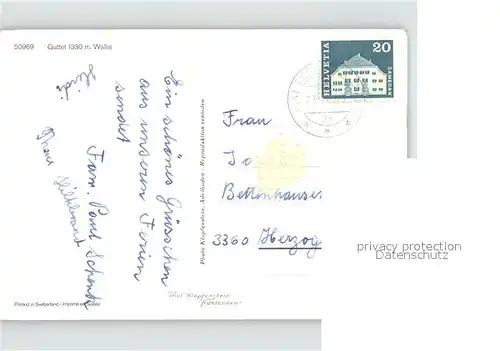 50969 Guttet 1330 m. Wallis
HELVETIA
20
Ein schönes Grüsschen
aus unseren Ferien
sendet
Fam. Paul Schenk
Heidi
Photo Klopfenstein, Adelboden - Reproduktion verboten
Frau
Bettenhausen
3360 Herzog
Printed in Switzerland - Imprimé en Suisse
Phot Klopfenstein
Adelboden
privacy protection
Datenschutz